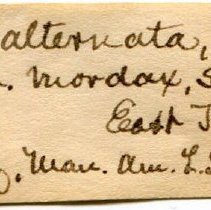 alternata,
mordax, S
East T
Man. Am. L. S